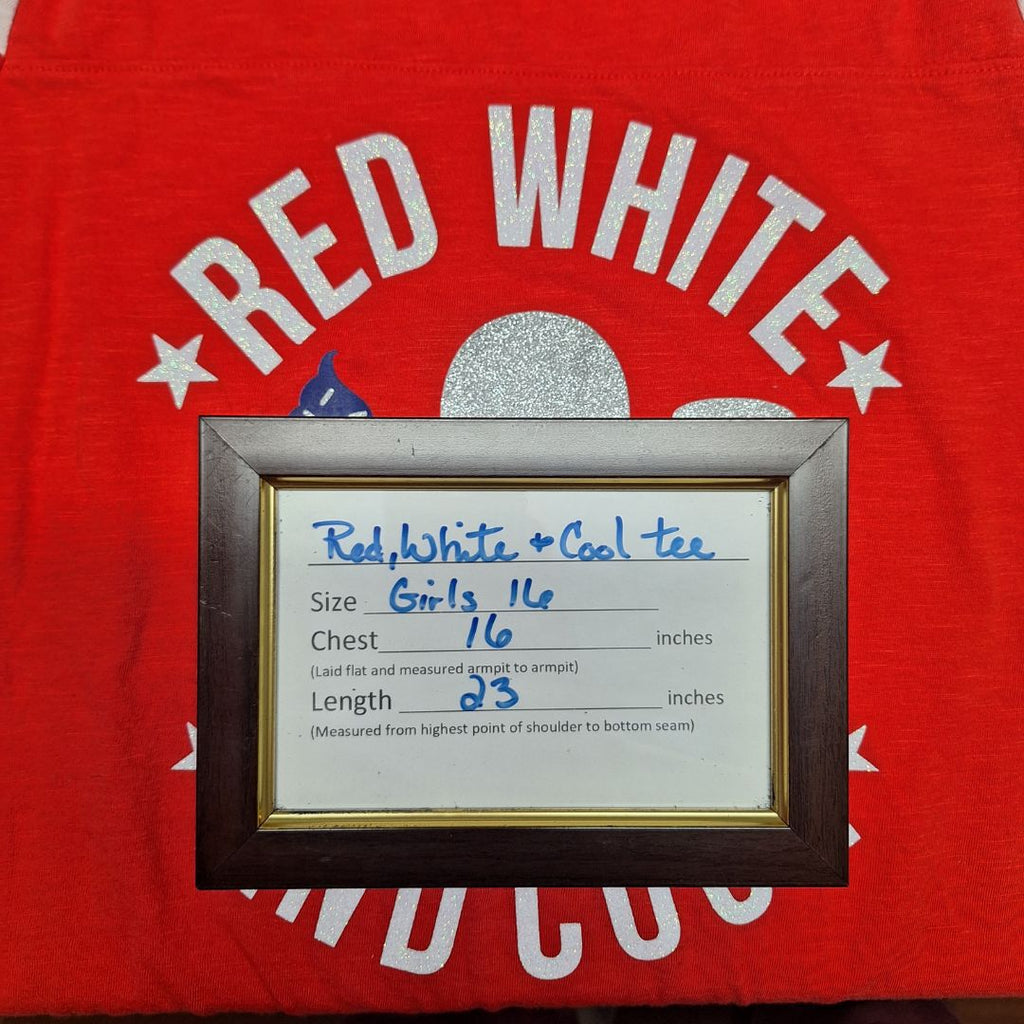 RED WHITE
Red, White & Cool tee
Size Girls 16
Chest 16 inches
(Laid flat and measured armpit to armpit)
Length 23 inches
(Measured from highest point of shoulder to bottom seam)